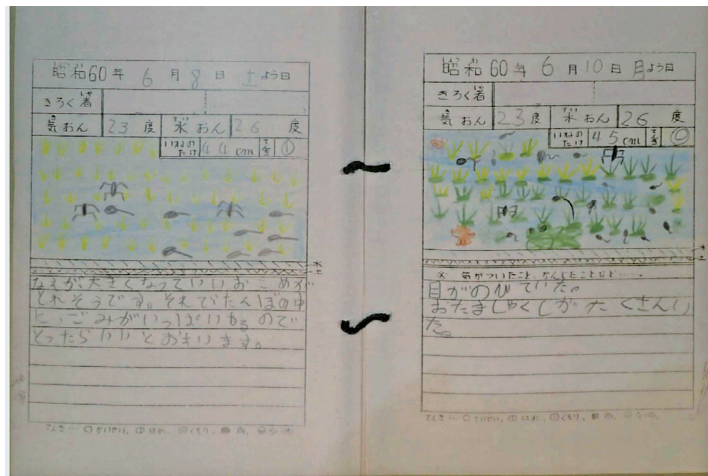 昭和60年 6月 8日 土よう日
きろく者
気おん 23度 水おん 26度
いねの たけ 44cm 天き ①
水
土
なえが、大きくなっていいおこめが
とれそうです。それで、たんぼの中
に、ごみがいっぱいあるので
とったらいいとおもいます。
昭和60年 6月 10日 月よう日
きろく者
気おん 23度 水おん 26度
いねの たけ 45cm 天き
水
土
気がついたこと、かんじたことなど
目がのびていた。
おたまじゃくしがたくさんい
た。